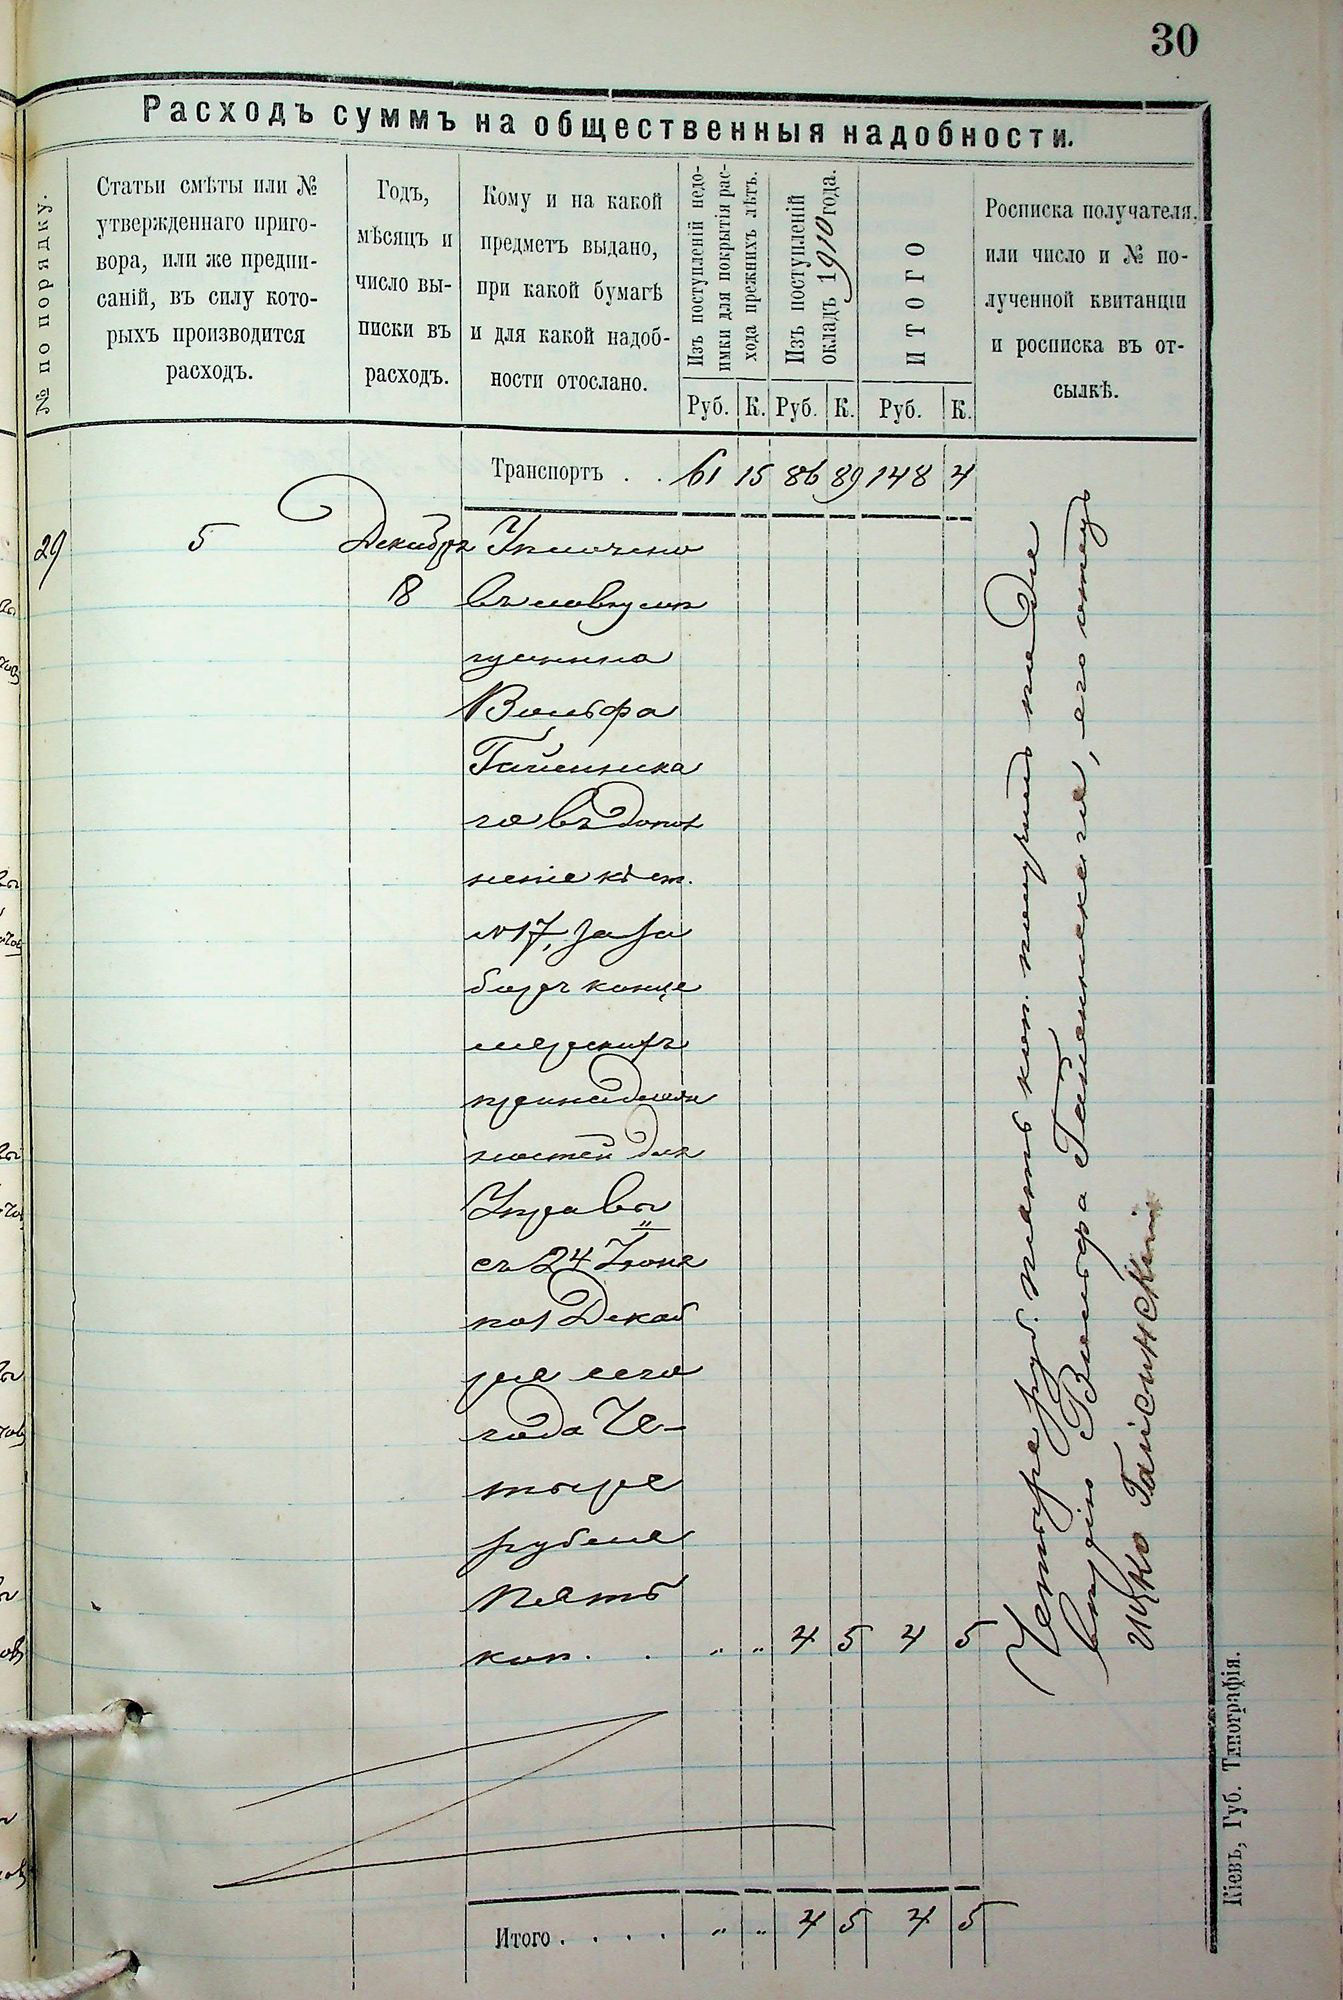 30
Расходъ суммъ на общественныя надобности.
№ по порядку.
Статьи смѣты или №
утвержденнаго приго-
вора, или же предпи-
саній, въ силу кото-
рыхъ производится
расходъ.
Годъ,
мѣсяцъ и
число вы-
писки въ
расходъ.
Кому и на какой
предметъ выдано,
при какой бумагѣ
и для какой надоб-
ности отослано.
Изъ поступленій недо-
имки для покрытія рас-
хода прежнихъ лѣтъ.
Изъ поступленій
окладъ 1910 года.
ИТОГО
Росписка получателя,
или число и № по-
лученной квитанціи
и росписка въ от-
сылкѣ.
Руб. К. Руб. К. Руб. К.
Транспортъ . . 61 15 86 89 148 4
29 5 Декабря Уплочено
18 въ лавку мѣ
щанина
Вольфа
Гайсинска
го въ допол
неніе къ ст.
№ 17, за за
боръ канце
лярскихъ
принадлеж
ностей для
Управы
съ 24 Іюня
по 1 Декаб
ря сего
года Че-
тыре
рубля
пять
коп. . „ „ 4 5 4 5
Итого . . . . „ „ 4 5 4 5
Четыре руб. пять коп. получилъ по до
вѣрію Вольфа Гайсинскаго, его отецъ
Ицко Гайсинскій
Кіевъ, Губ. Типографія.